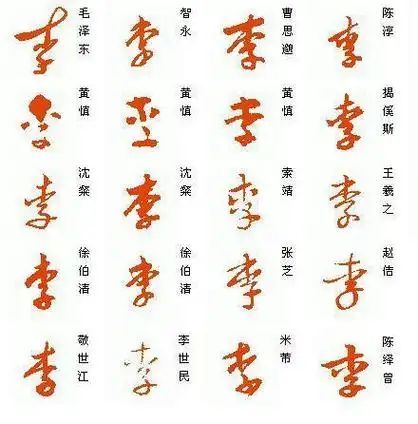 李 毛泽东
李 智永
李 曹思邈
李 陈淳
李 黄慎
李 黄慎
李 黄慎
李 揭傒斯
李 沈粲
李 沈粲
李 索靖
李 王羲之
李 徐伯清
李 徐伯清
李 张芝
李 赵佶
李 敬世江
李 李世民
李 米芾
李 陈绎曾